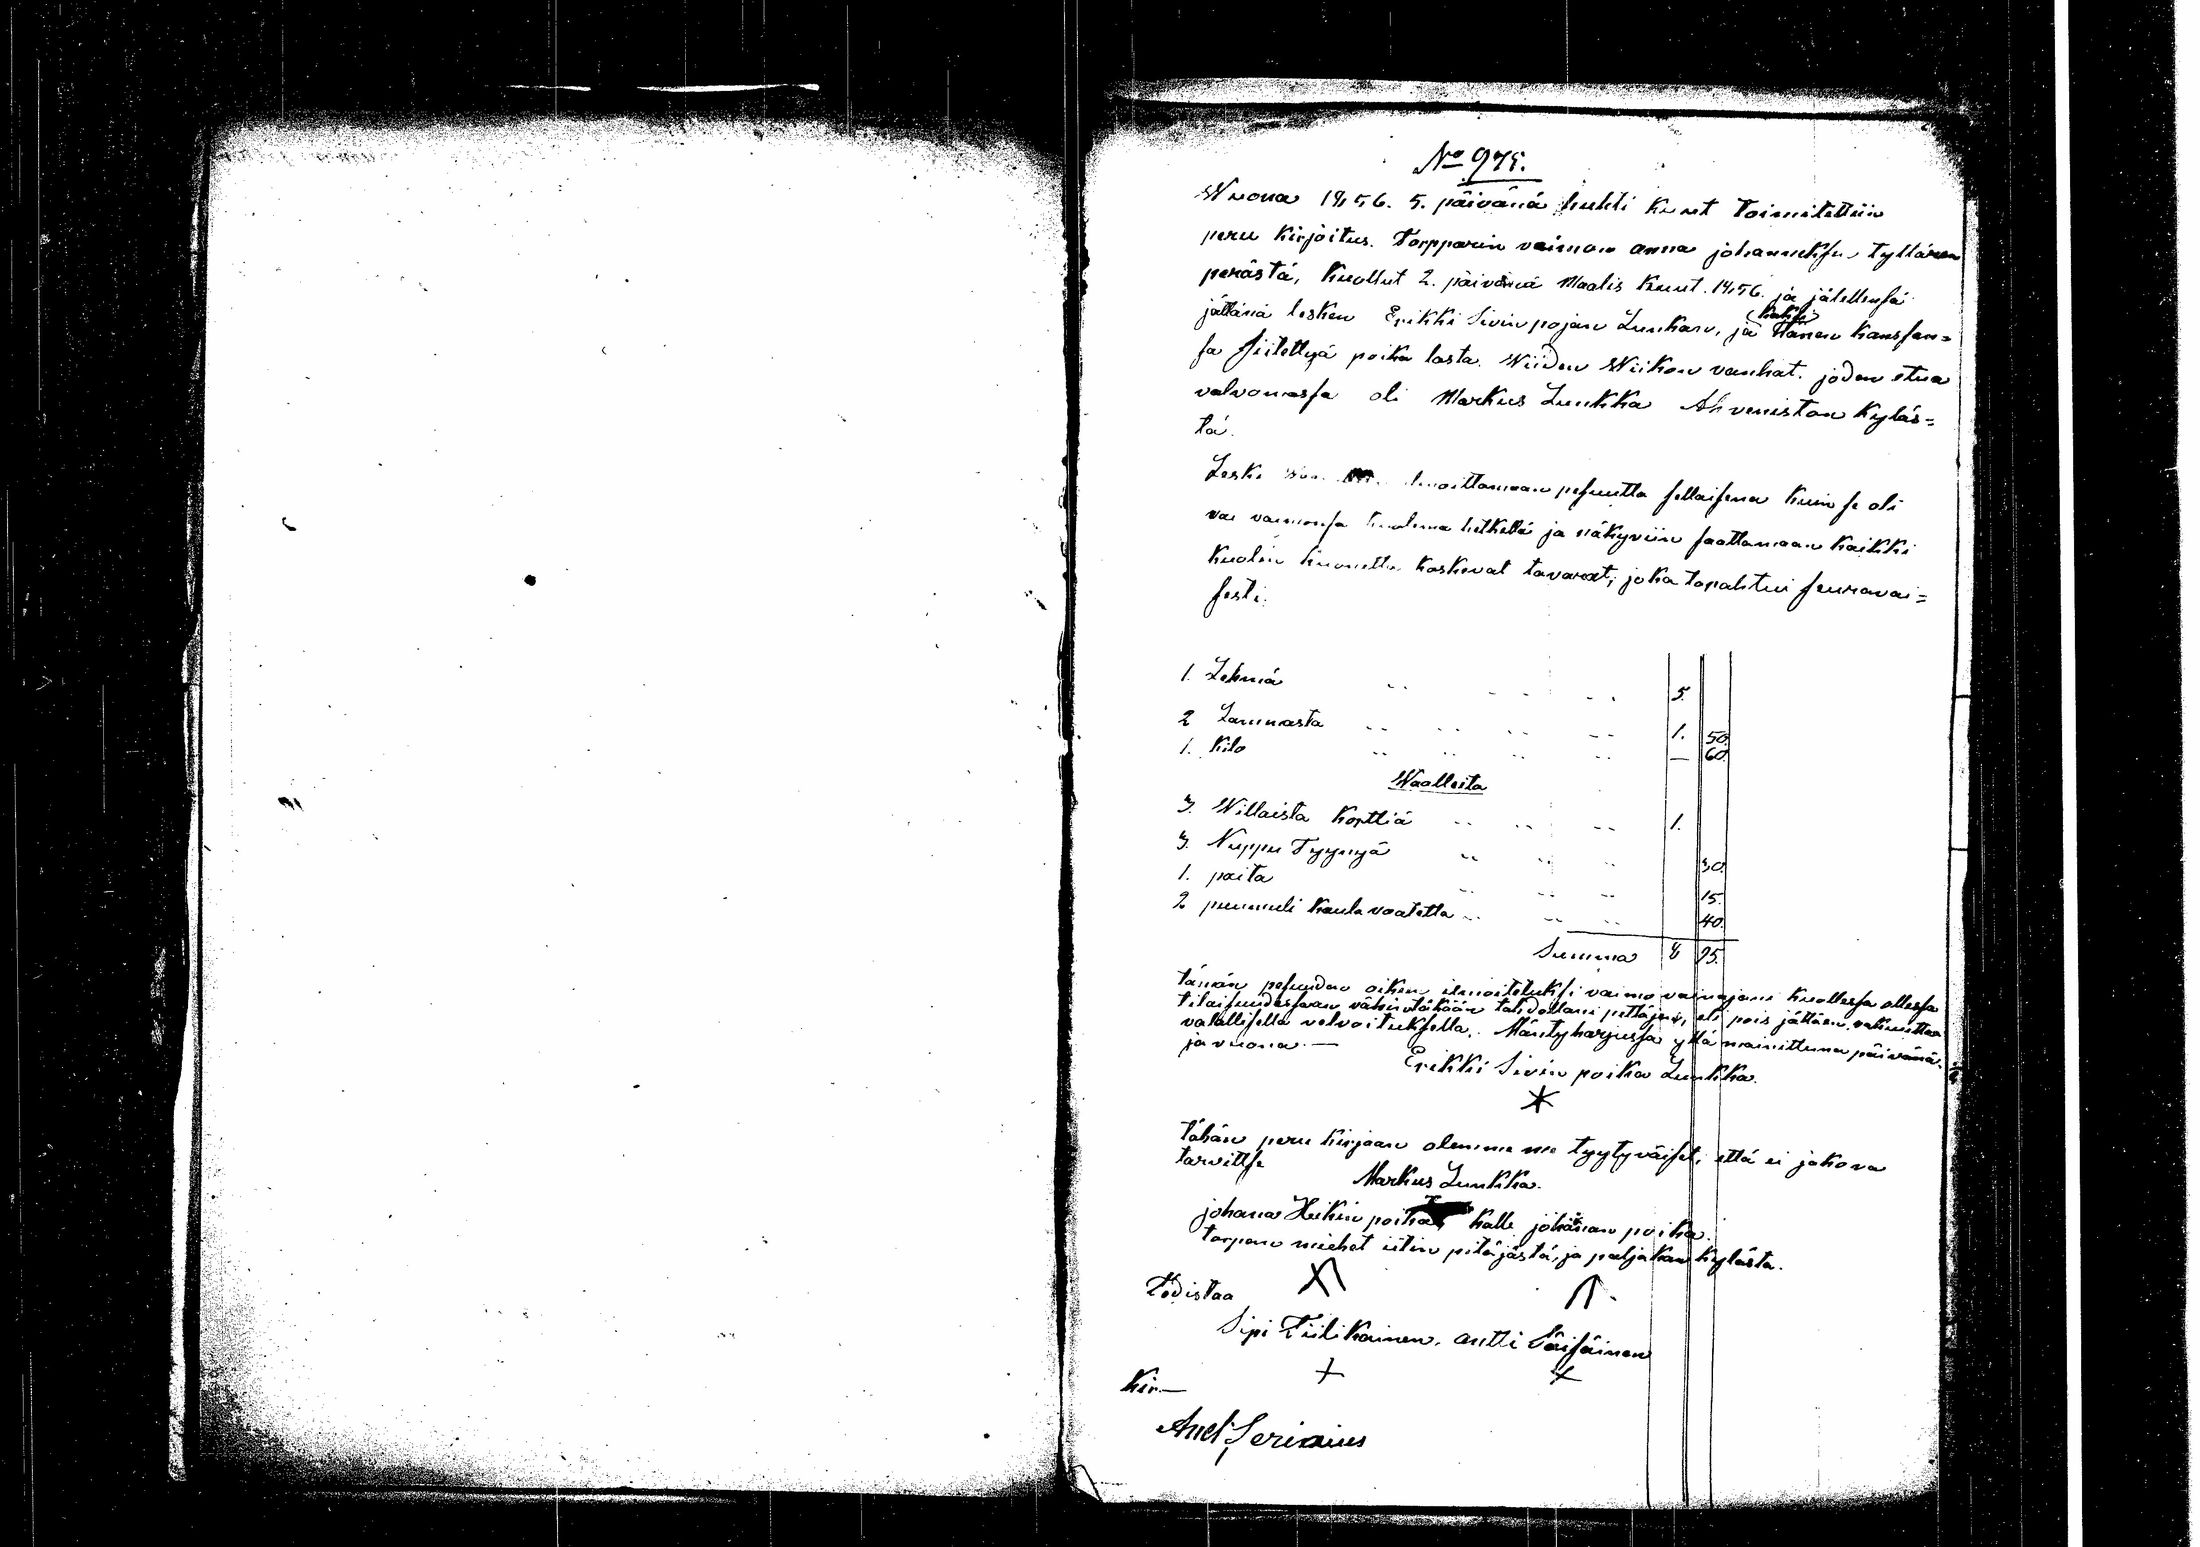 No 975.
Wuona 1856. 5. päivänä huhti kuut toimitettiin
peru kirjoitus. Torpparin vaimon anna johanneksen tyttären
perästä, kuollut 2. päivänä Maalis kuut. 1856. ja jälellensä
jättänä lesken Erikki Sivin pojan Lunkan, ja (kaksi) hänen kanssan=
sa siitettyä poika lasta. Wiiden Wiikon vanhat. joden etua
valvomassa oli Markus Lunkka Ahveniston kyläs=
tä.
Leski ilmoittamaan pesuutta sellaisena kuin se oli
vaimonsa kuolema hetkellä ja näkyviin saattamaan kaikki
kuolin huonetta koskevat tavarat; joka tapahtui seuravai=
sesti.
1. Lehmä 5.
2 Lammasta 1. 50.
1. kilo — 60.
Waatteita
3. Willaista korttiä 1.
3. Nuppu Tyynyä 30.
1. paita 15.
2 puumuli kaula vaatetta 40.
Summa 8 95.
tämän pesuuden oiken ilmoitetuksi vaimo vainajani kuollessa ollessa
tilaisuudessaan vähintäkään tahdollani pettäjen, eli pois jättäen, vakuuttaa
valallisella velvoituksella. Mäntyharjussa yllä mainittuna päivänä
ja vuona. —
Erikki Sivin poika Lunkka.
tähän peru kirjaan olemme me tyytyväiset, että ei jakova
tarvitse
Markus Lunkka.
johana Heikin poika, kalle johanan poika.
torpan miehet iitin pitäjästä, ja paljakan kylästä.
Todistaa
Sipi Tiilikainen. antti Väisäinen
X X
Kir.—
And: Serenius